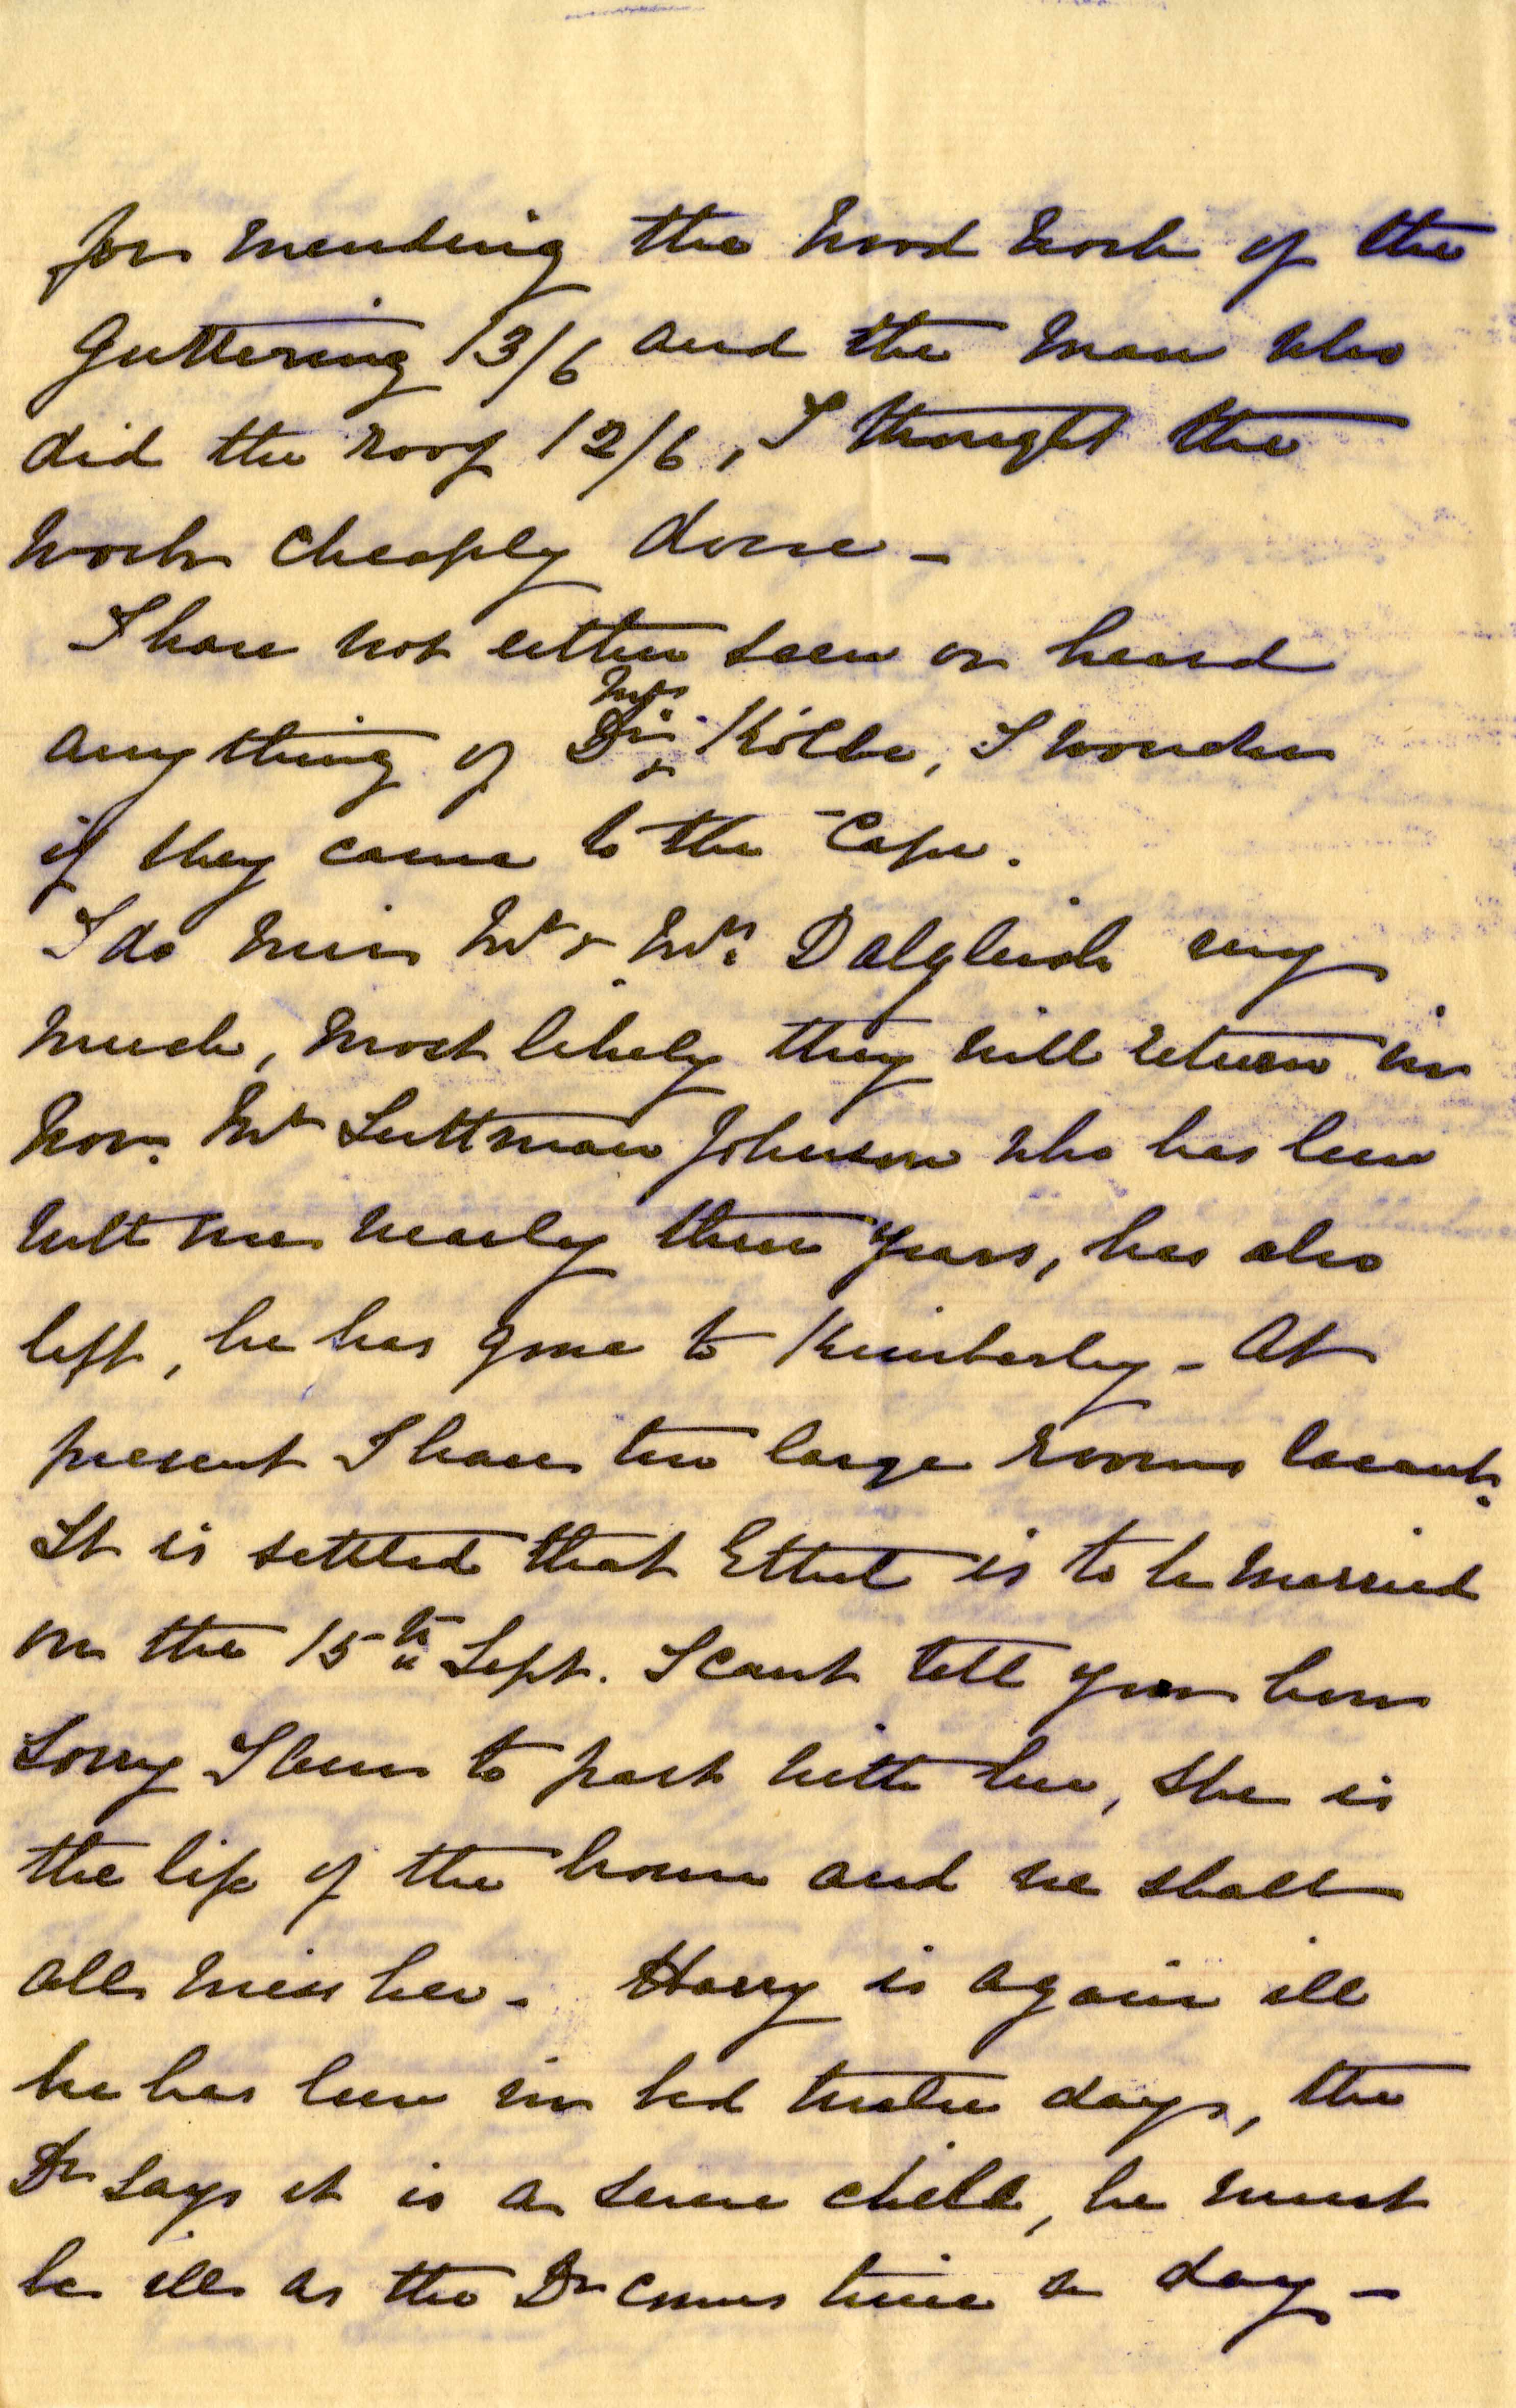 for mending the wood work of the
guttering 13/6 and the man who
did the roof 12/6, I thought the
work cheaply done -
I have not either seen or heard
anything of Dr & Mrs Kolbe, I wonder
if they came to the Cape.
I do miss Mr & Mrs Dalgleish very
much, most likely they will return in
Nov. Mr Luttman Johnson who has been
with me nearly three years, has also
left, he has gone to Kimberley - At
present I have two large rooms vacant.
It is settled that Ethel is to be married
on the 15th Sept. I cant tell you how
sorry I am to part with her, she is
the life of the house and we shall
all miss her - Harry is again ill
he has been in bed twelve days, the
Dr says it is a severe chill, he must
be ill as the Dr comes twice a day -